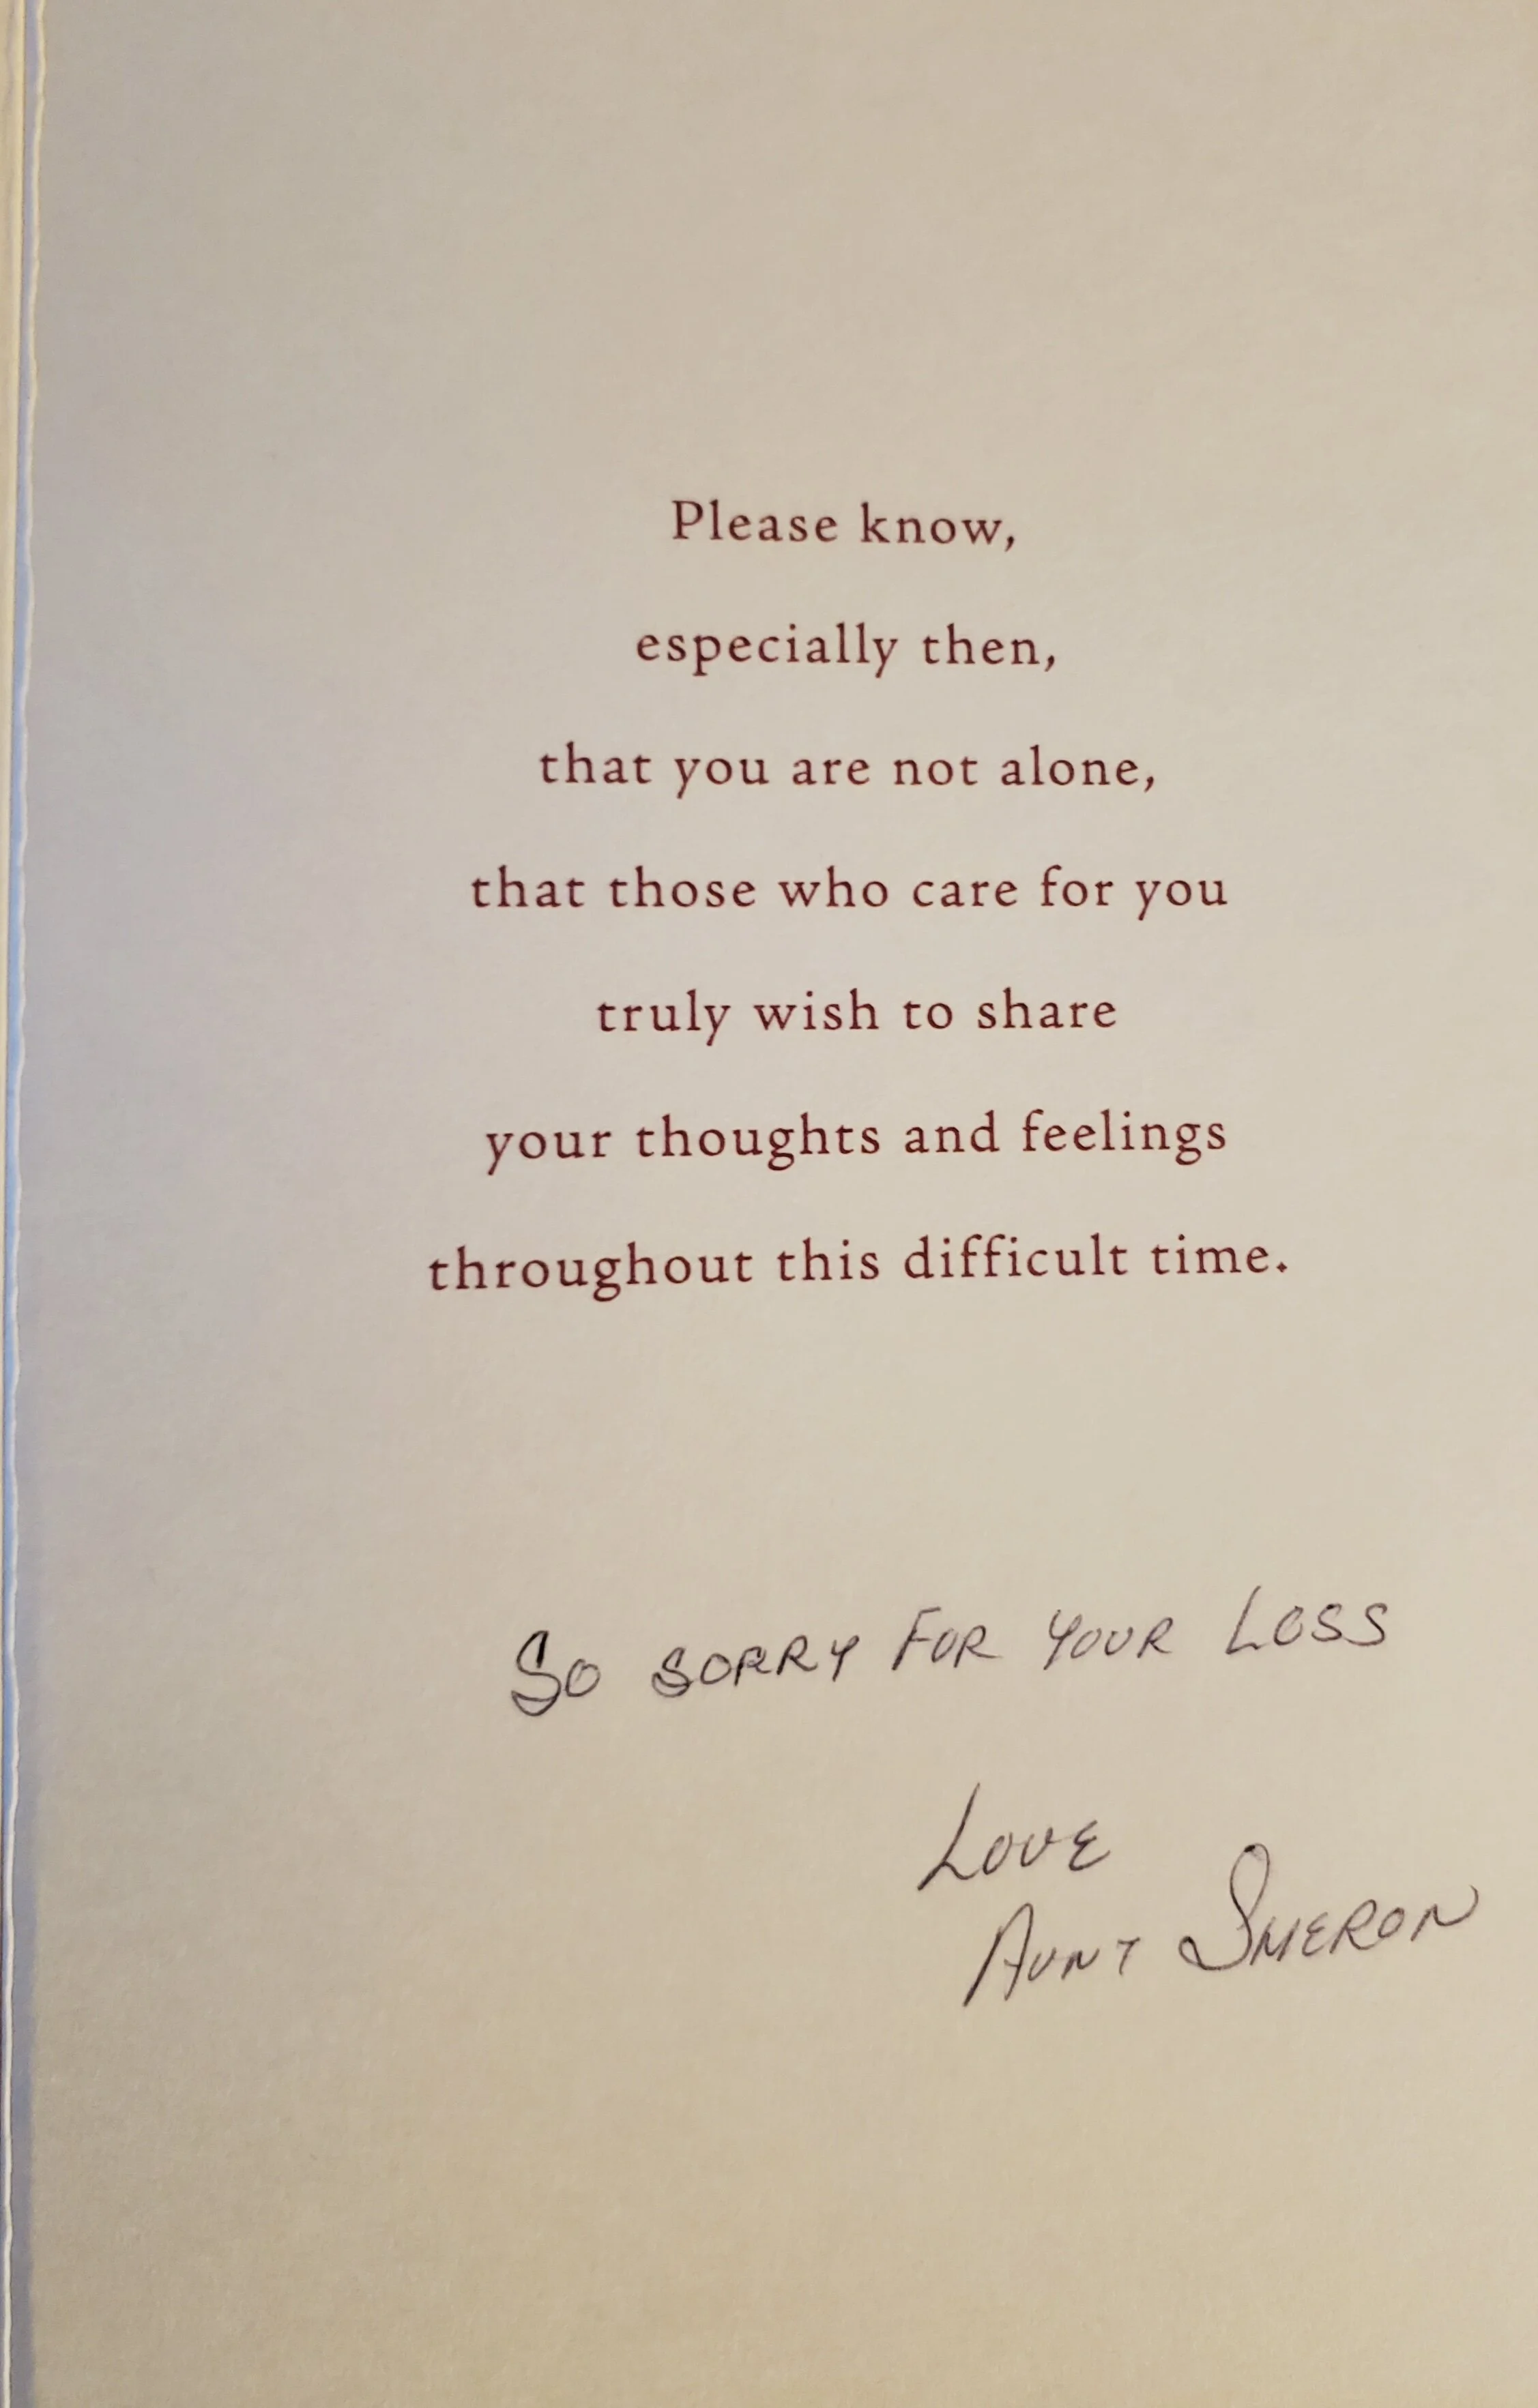 Please know,
especially then,
that you are not alone,
that those who care for you
truly wish to share
your thoughts and feelings
throughout this difficult time.
So SORRY FOR YOUR LOSS
LOVE
AUNT